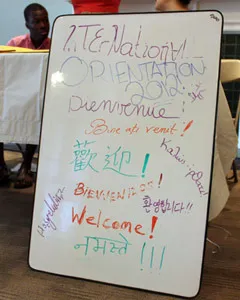 INTERNational
ORIENTATION
2012
Bienvenue!
Bine ați venit!
歡迎!
BIENVENIDOS!
환영합니다!!
Welcome!
नमस्ते !!!